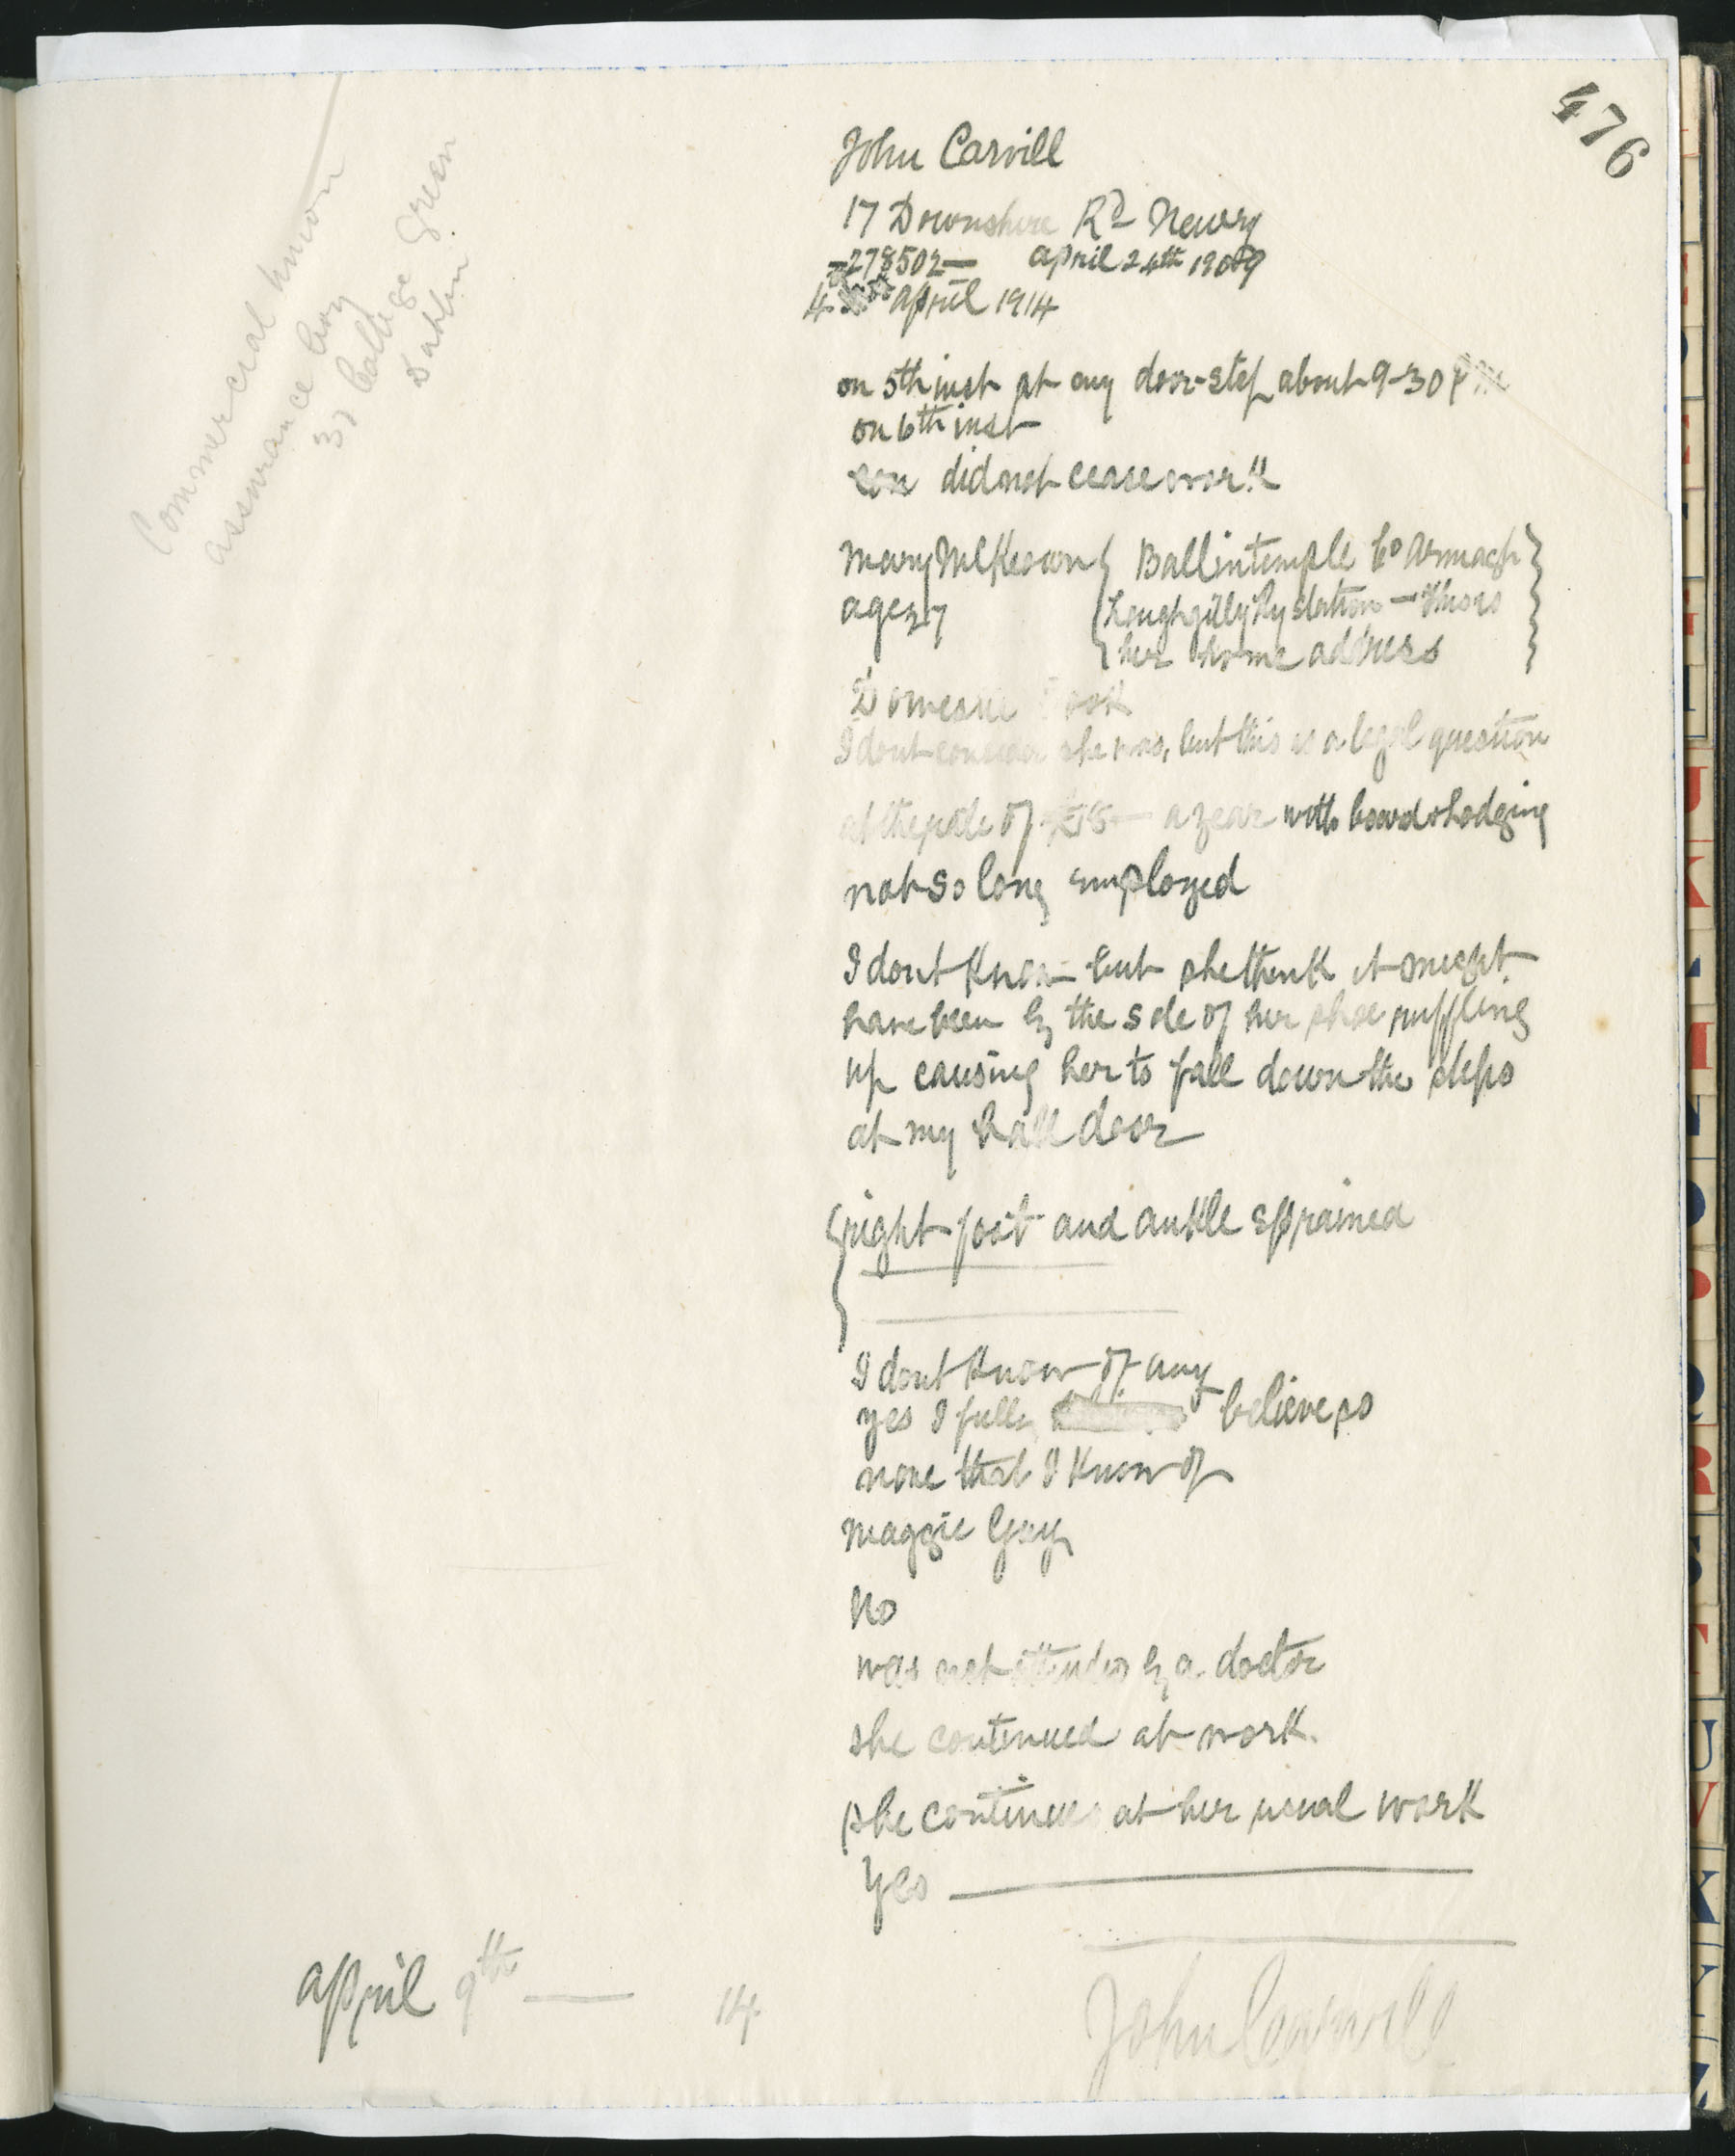 476
Commercial Union
Assurance Coy
37 College Green
Dublin
John Carvill
17 Downshire Rd Newry
278502— April 24th 1909
April 1914
on 5th inst at my door-step about 9-30
on 6th inst
did not cease work
Mary McKeown { Ballintemple Co Armagh }
age 27 { Loughgilly Ry Station — this is }
{ her home address }
Domestic Cook
I dont consider she was, but this is a legal question
at the rate of £18— a year with board & lodging
not so long employed
I dont know— but she think it might
have been by the sole of her shoe ruffling
up causing her to fall down the steps
at my hall door
right foot and ankle sprained
I dont know of any
yes I fully believe so
none that I know of
Maggie Guy
No
was not attended by a doctor
she continued at work.
she continues at her usual work
Yes
April 9th — 14
John Carvill